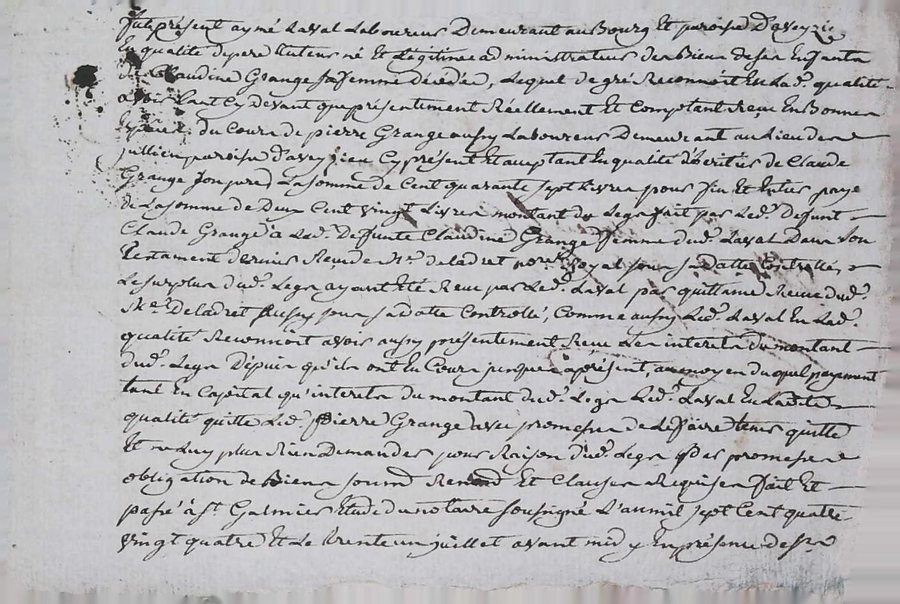 fut présent aymé Laval Laboureur Demeurant au Bourg Et paroisse D'aveyzieu
En qualité de pere tuteur né Et Légitime administrateur des Biens de ses Enfants
de Claudine Grange sa femme décédée, Lequel de gré Reconnoit En Lad.e qualité
avoir tant Cy devant que présentement Réellement Et Comptant Reçu En Bonnes
Espèces du Cours de pierre Grange aussy Laboureur Demeurant au Lieu de
jullien paroisse d'aveyzieu Cy présent Et acceptant En qualité d'héritier de Claude
Grange son pere La somme de Cent quarante sept Livres pour fin Et Entier paye
de La somme de Deux Cent vingt Livres montant du Legs fait par Led.t Defunt
Claude Grange à Lad.e Defunte Claudine Grange femme dud.t Laval Dans son
Testament dernier Reçu de M.e deladret no.re Royal sous sa datte Controllé,
Le surplus dud.t Legs ayant Eté Reçu par Led.t Laval par quittance Reçue dud.t
M.e Deladret aussy sous sa datte Controllé, Comme aussy Led.t Laval En Lad.e
qualité Reconnoit avoir aussy présentement Reçu Les interets du montant
dud.t Legs Depuis qu'ils ont Eu Cours jusques à présent, au moyen duquel payement
tant En Capital qu'interets du montant dud.t Legs Led.t Laval En Ladite
qualité quitte Led.t Pierre Grange avec promesse de Le faire tenir quitte
Et ne Luy plus Rien Demander pour Raison dud.t Legs Par promesse
obligation de Biens soumis Renon.d Et Clauses a Requises fait Et
passé à St. Galmier Etude du notaire soussigné L'an mil sept Cent quatre
vingt quatre Et Le trente un juillet avant midy En présence de S.r